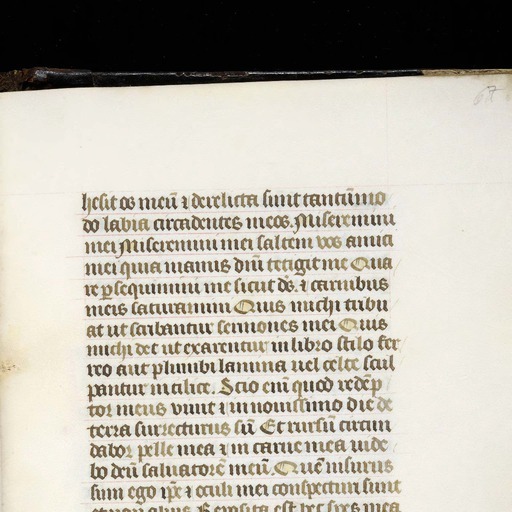 68
hesit os meū ⁊ derelicta sunt tantūmo
do labia circa dentes meos. Miseremini
mei Miseremini mei saltem vos amici
mei quia manus dñi tetigit me Qua
re ꝑsequimini me sicut d̄s. ⁊ carnibus
meis saturamini Quis michi tribu
at ut scribantur sermones mei Quis
michi det ut exarentur in libro stilo fer
reo aut plumbi lamina uel celte scul
pantur in silice. Scio eni̅ quod redēp
tor meus viuit ⁊ in nouissimo die de
terra surrecturus sū Et rursū circū
dabor pelle mea ⁊ in carne mea uide
bo deū saluatorē meū. Quē uisurus
sum ego ip̄e ⁊ oculi mei conspecturi sunt
et non alius. Reposita est hec spes mea